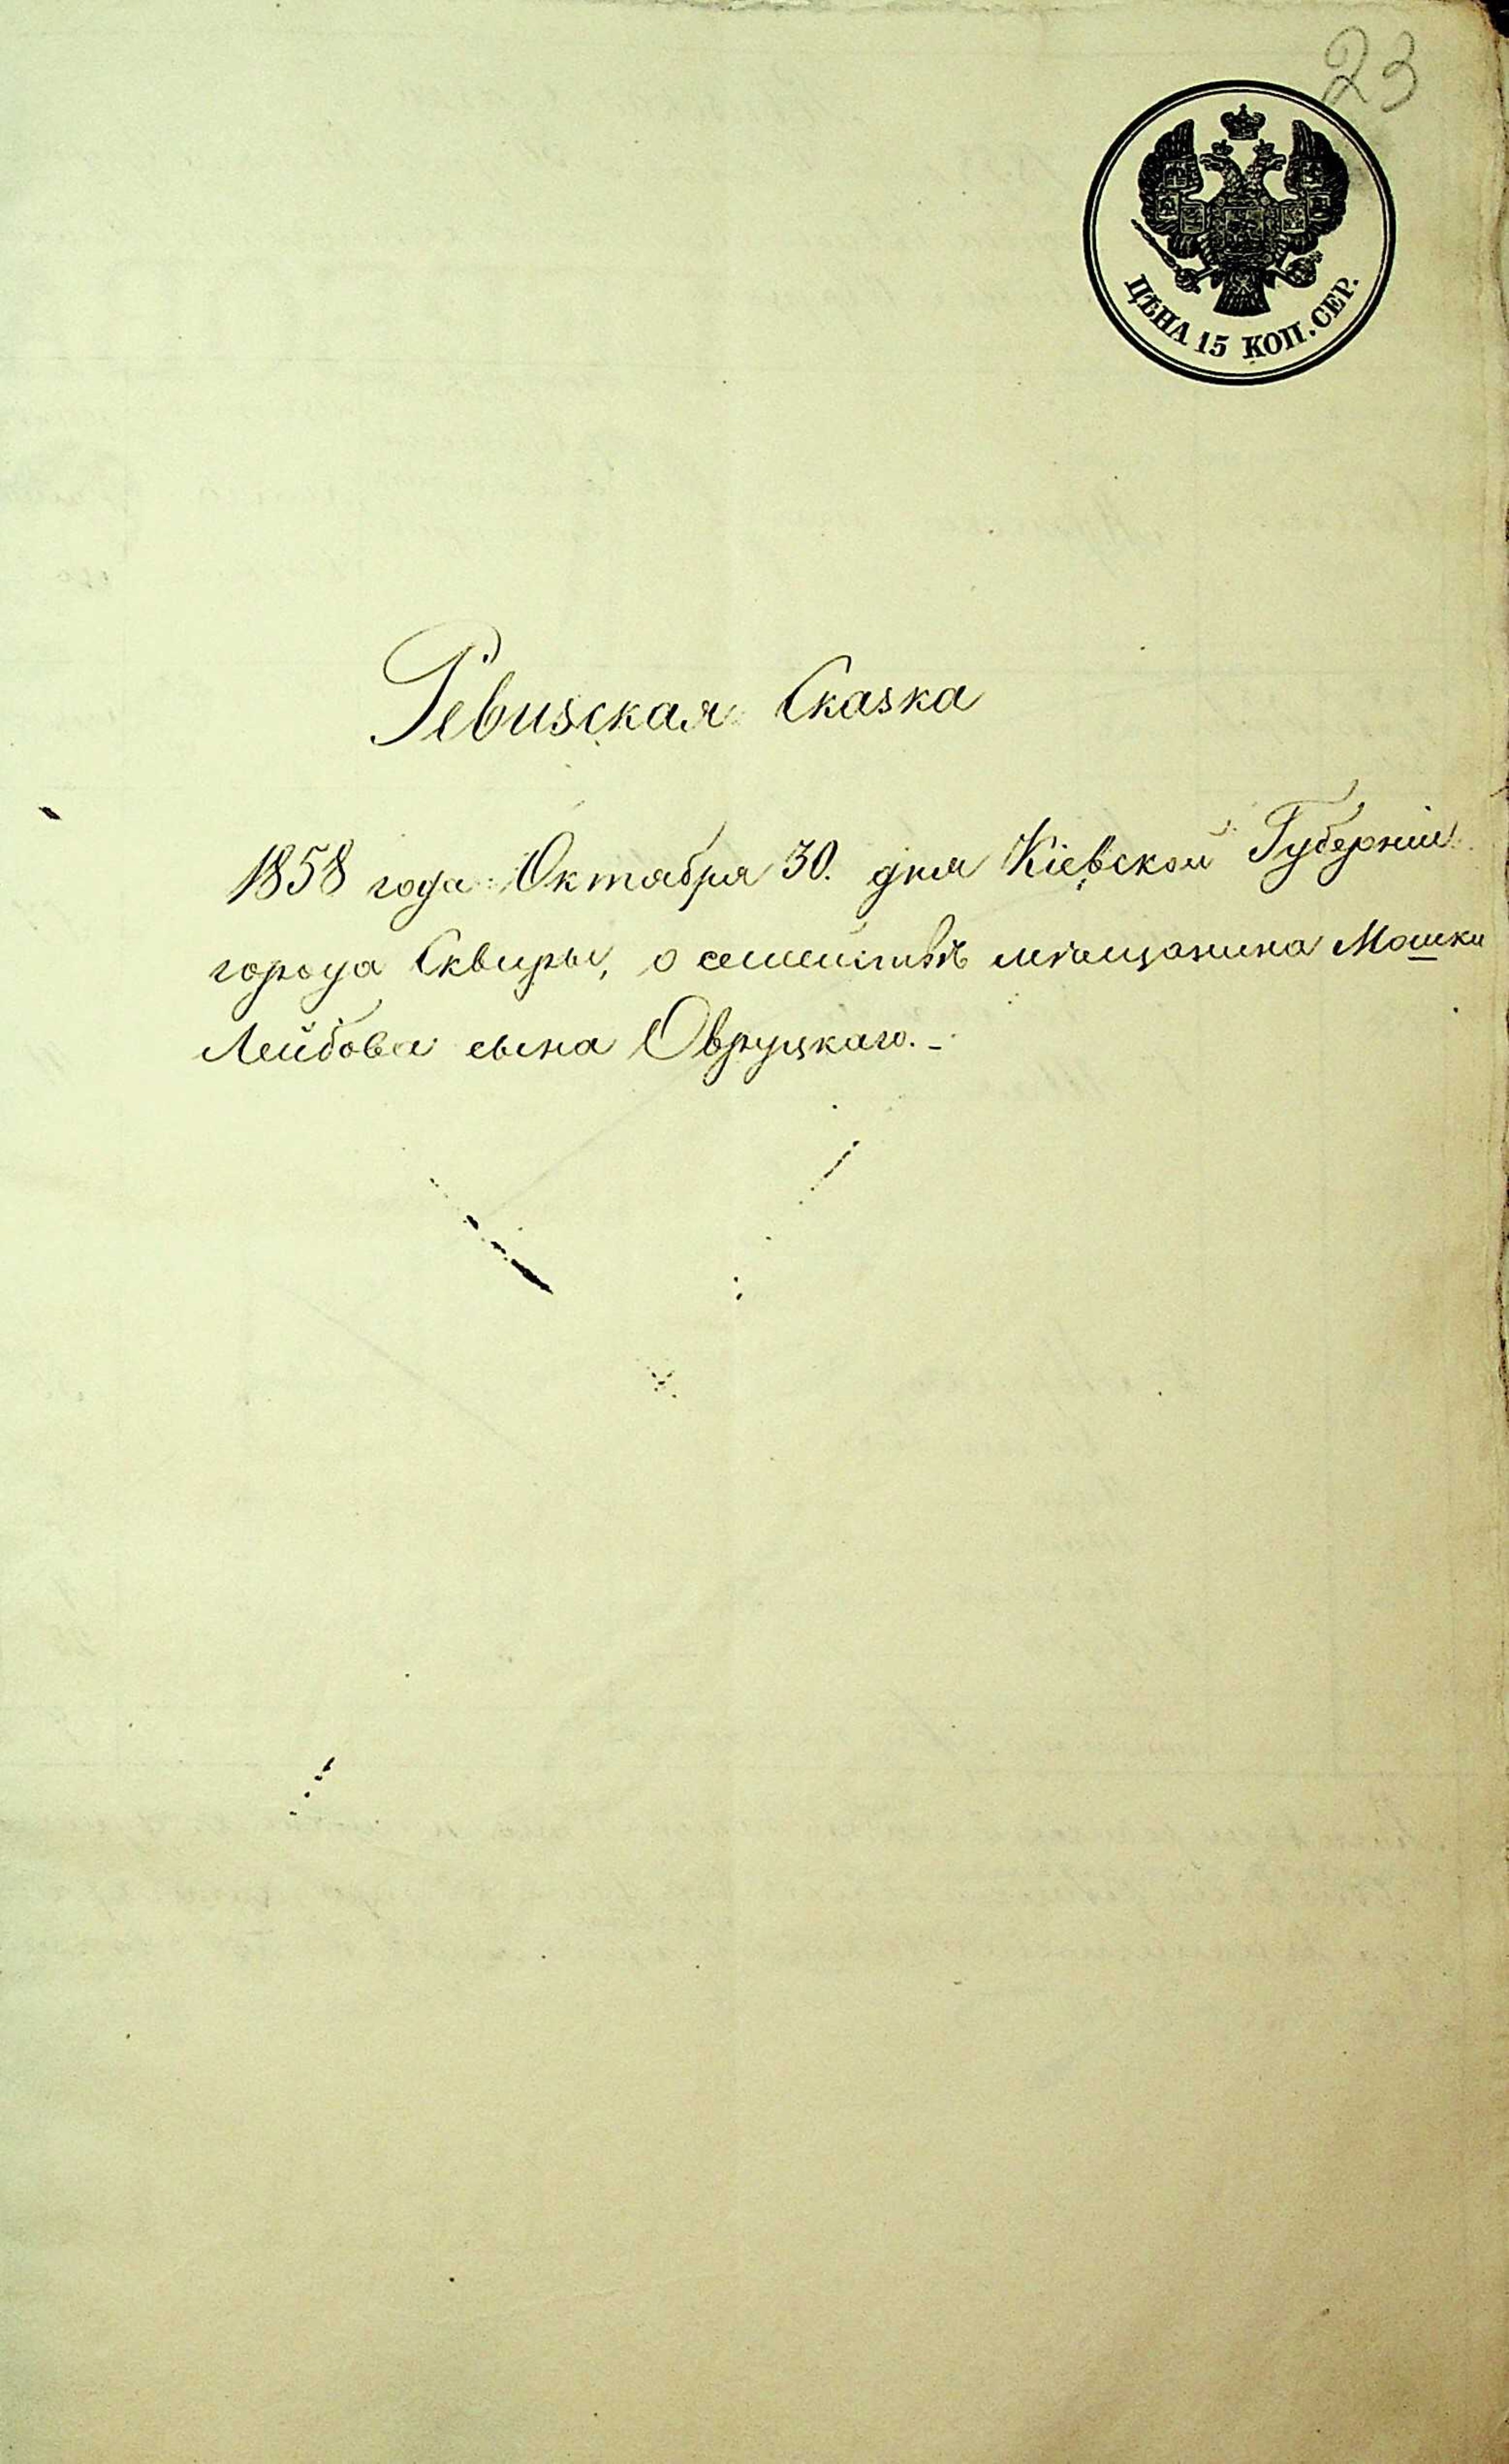 23
ЦѢНА 15 КОП. СЕР.
Ревизская Сказка
1858 года Октября 30. дня Кіевской Губерніи
города Сквиры, о семействѣ мѣщанина Мошки
Лейбова сына Овруцкаго. -